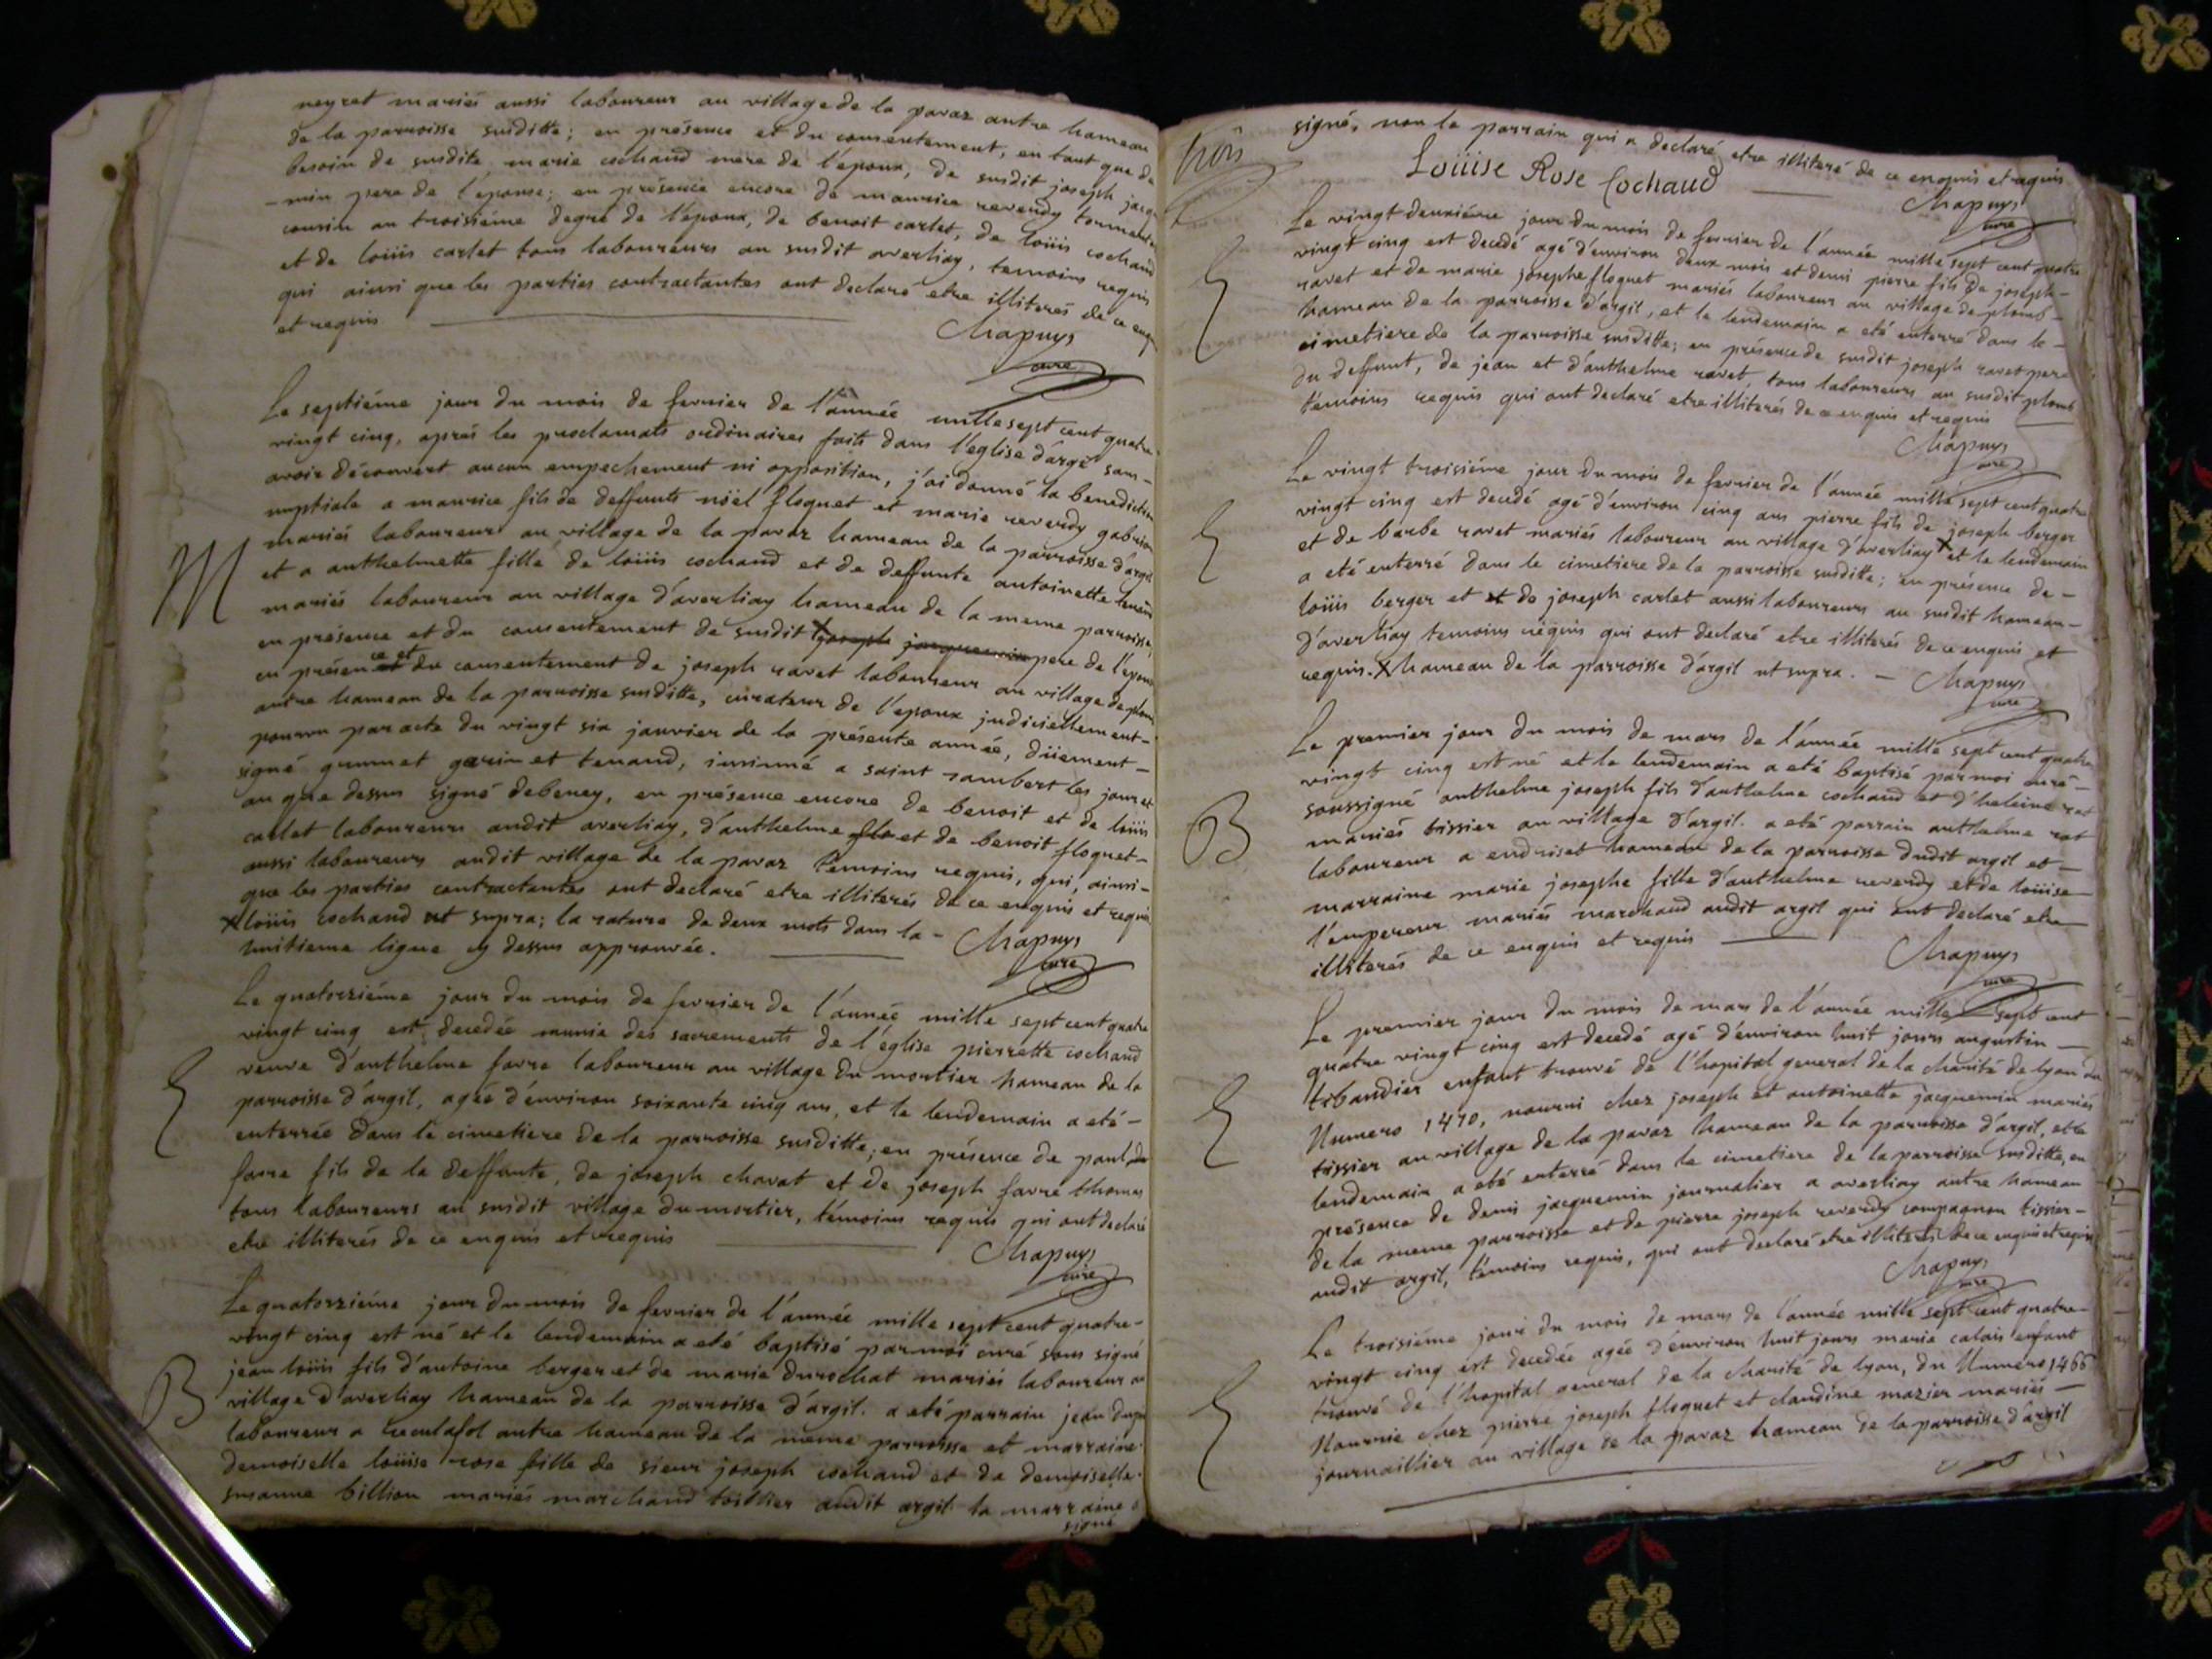 neyret mariés aussi laboureur au village de la pavaz autre hameau
de la parroisse susditte; en présence et du consentement, en tant que de
besoin de susdite marie cochaud mere de l'époux, de susdit joseph jacq
-min pere de l'épouse; en présence encore de maurice reverdy
cousin au troisiéme degré de l'époux, de benoit carlet, de loüis cochaud
et de loüis carlet tous laboureurs au susdit averliay, temoins requis
qui ainsi que les parties contractantes ont declaré etre illiterés de ce enq
et requis
Chapuys
curé
Le septiéme jour du mois de fevrier de l'année mille sept cent quatre
vingt cinq, aprés les proclamats ordinaires faits dans l'église d'argil sans
avoir découvert aucun empechement ni opposition, j'ai donné la benediction
nuptiale a maurice fils de deffunts noël floquet et marie reverdy gabrion
mariés laboureurs au village de la pavaz hameau de la parroisse d'argil
et a anthelmette fille de loüis cochaud et de deffunte antoinette
mariés laboureur au village d'averliay hameau de la meme parroisse,
en présence et du consentement de susdit X joseph jacquemin pere de l'épouse
en présence et du consentement de joseph ravet laboureur au village de plom
autre hameau de la parroisse susditte, curateur de l'epoux judiciellement-
pourvu par acte du vingt six janvier de la présente année, düement-
signé grumet garin et tenand, insinué a saint rambert les jour et
an que dessus signé debeney, en présence encore de benoit et de loüis
carlet laboureurs audit averliay, d'anthelme flo et de benoit floquet-
aussi laboureurs audit village de la pavaz témoins requis, qui, ainsi-
que les parties contractantes ont declaré etre illiterés de ce enquis et requis
X loüis cochaud ut supra; la rature de deux mots dans la -
huitieme ligne cy dessus approuvée.
Chapuys
curé
Le quatorziéme jour du mois de fevrier de l'année mille sept cent quatre
vingt cinq est decedée munie des sacrements de l'église pierrette cochaud
veuve d'anthelme favre laboureur au village du mortier hameau de la
parroisse d'argil, agée d'environ soixante cinq ans, et le lendemain a eté-
enterrée dans le cimetiere de la parroisse susditte; en présence de paul
favre fils de la deffunte, de joseph chavat et de joseph favre thomas
tous laboureurs au susdit village du mortier, témoins requis qui ont declaré
etre illiterés de ce enquis et requis
Chapuys
curé
Le quatorziéme jour du mois de fevrier de l'année mille sept cent quatre-
vingt cinq est né et le lendemain a eté baptisé par moi curé sous signé
jean loüis fils d'antoine berger et de marie durochat mariés laboureur au
village d'averliay hameau de la parroisse d'argil. a eté parrain jean
laboureur a autre hameau de la meme parroisse et marraine
demoiselle loüise rose fille de sieur joseph cochaud et de demoiselle
susanne billion mariés marchand toillier audit argil la marraine a
signé
M
B
trois
signé, non le parrain qui a declaré etre illiteré de ce enquis et requis
Loüise Rose Cochaud
Chapuys
curé
Le vingt deuxiéme jour du mois de fevrier de l'année mille sept cent quatre
vingt cinq est decedé agé d'environ deux mois et demi pierre fils de joseph-
ravet et de marie josephe floquet mariés laboureur au village de plomb-
hameau de la parroisse d'argil, et le lendemain a eté enterré dans le-
cimetiere de la parroisse susditte; en présence de susdit joseph ravet pere
du deffunt, de jean et d'anthelme ravet, tous laboureurs au susdit plomb
témoins requis qui ont declaré etre illiterés de ce enquis et requis
Chapuys
curé
Le vingt troisiéme jour du mois de fevrier de l'année mille sept cent quatre
vingt cinq est decedé agé d'environ cinq ans pierre fils de joseph berger
et de barbe ravet mariés laboureur au village d'averliay X et le lendemain
a eté enterré dans le cimetiere de la parroisse susditte; en présence de-
loüis berger et et de joseph carlet aussi laboureurs au susdit hameau-
d'averliay temoins requis qui ont declaré etre illiterés de ce enquis et
requis. X hameau de la parroisse d'argil ut supra. -
Chapuys
curé
Le premier jour du mois de mars de l'année mille sept cent quatre
vingt cinq est né et le lendemain a eté baptisé par moi curé-
soussigné anthelme joseph fils d'anthelme cochaud et d'heleine rat
mariés tissier au village d'argil. a eté parrain anthelme rat
laboureur a endriset hameau de la parroisse dudit argil et-
marraine marie josephe fille d'anthelme reverdy et de loüise-
l'empereur mariés marchand audit argil qui ont declaré etre
illiterés de ce enquis et requis
Chapuys
curé
Le premier jour du mois de mars de l'année mille sept cent
quatre vingt cinq est decedé agé d'environ huit jours augustin-
tibaudier enfant trouvé de l'hopital general de la charité de lyon du
Numero 1470, nourri chez joseph et antoinette jacquemin mariés
tissier au village de la pavaz hameau de la parroisse d'argil, et le
lendemain a eté enterré dans le cimetiere de la parroisse susditte, en
présence de denis jacquemin journalier a averliay autre hameau
de la meme parroisse et de pierre joseph reverdy compagnon tissier-
audit argil, témoins requis, qui ont declaré etre illiterés de ce enquis et requis
Chapuys
curé
Le troisiéme jour du mois de mars de l'année mille sept cent quatre-
vingt cinq est decedée agée d'environ huit jours marie calais enfant
trouvé de l'hopital general de la charité de lyon, du Numero 1466
Nourrie chez pierre joseph floquet et claudine mazier mariés-
journaillier au village de la pavaz hameau de la parroisse d'argil
B